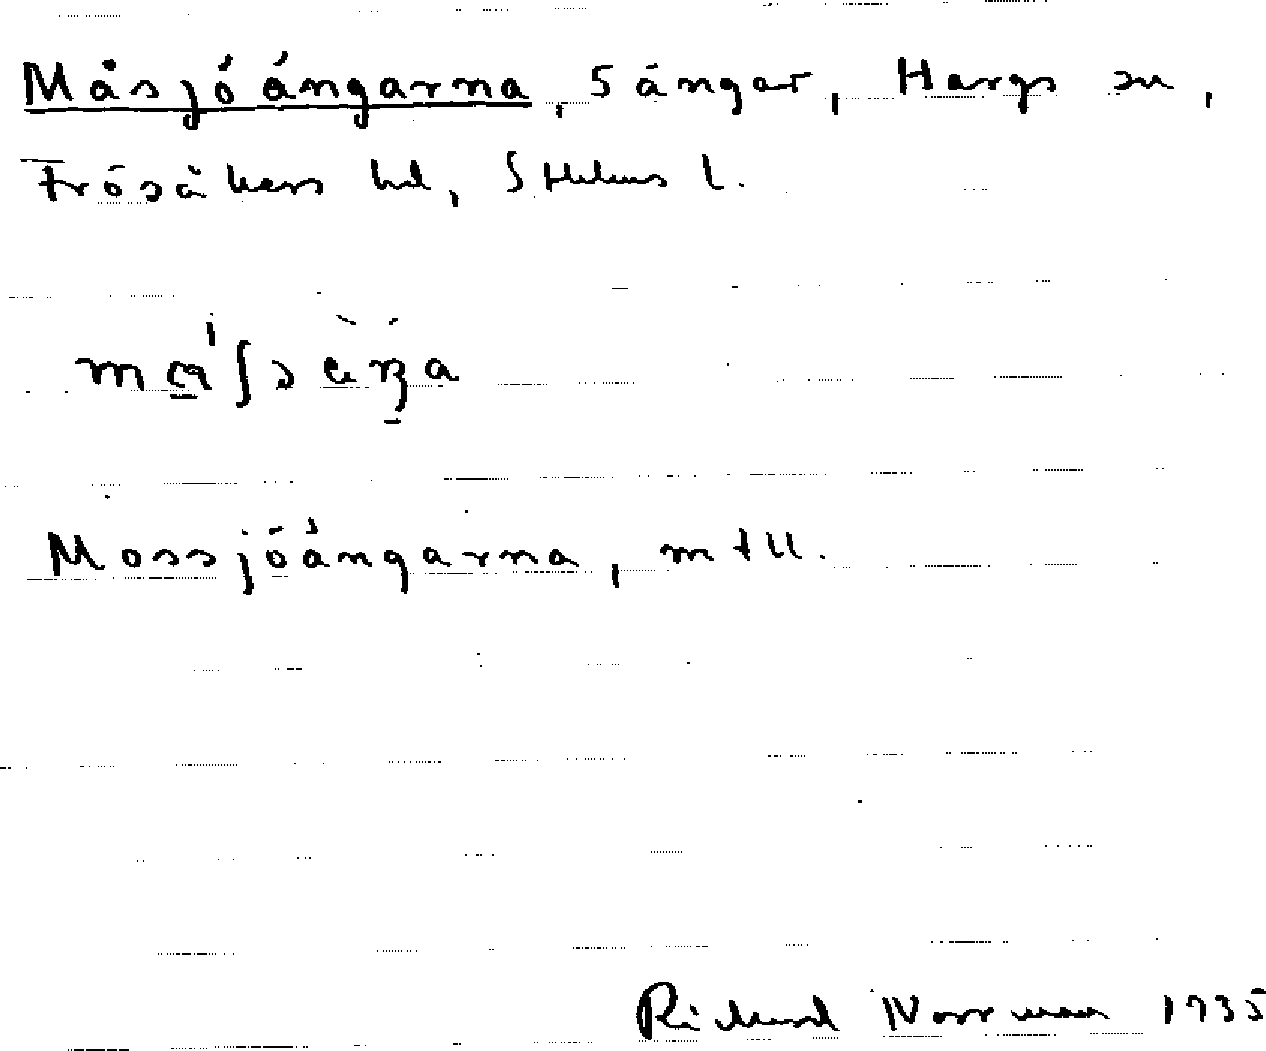 Måsjöängarna, 5 ängar, Hargs sn,
Frösåkers hd, Sthlms l.
Mossjöängarna, mtll.
Richard Norrman 1935